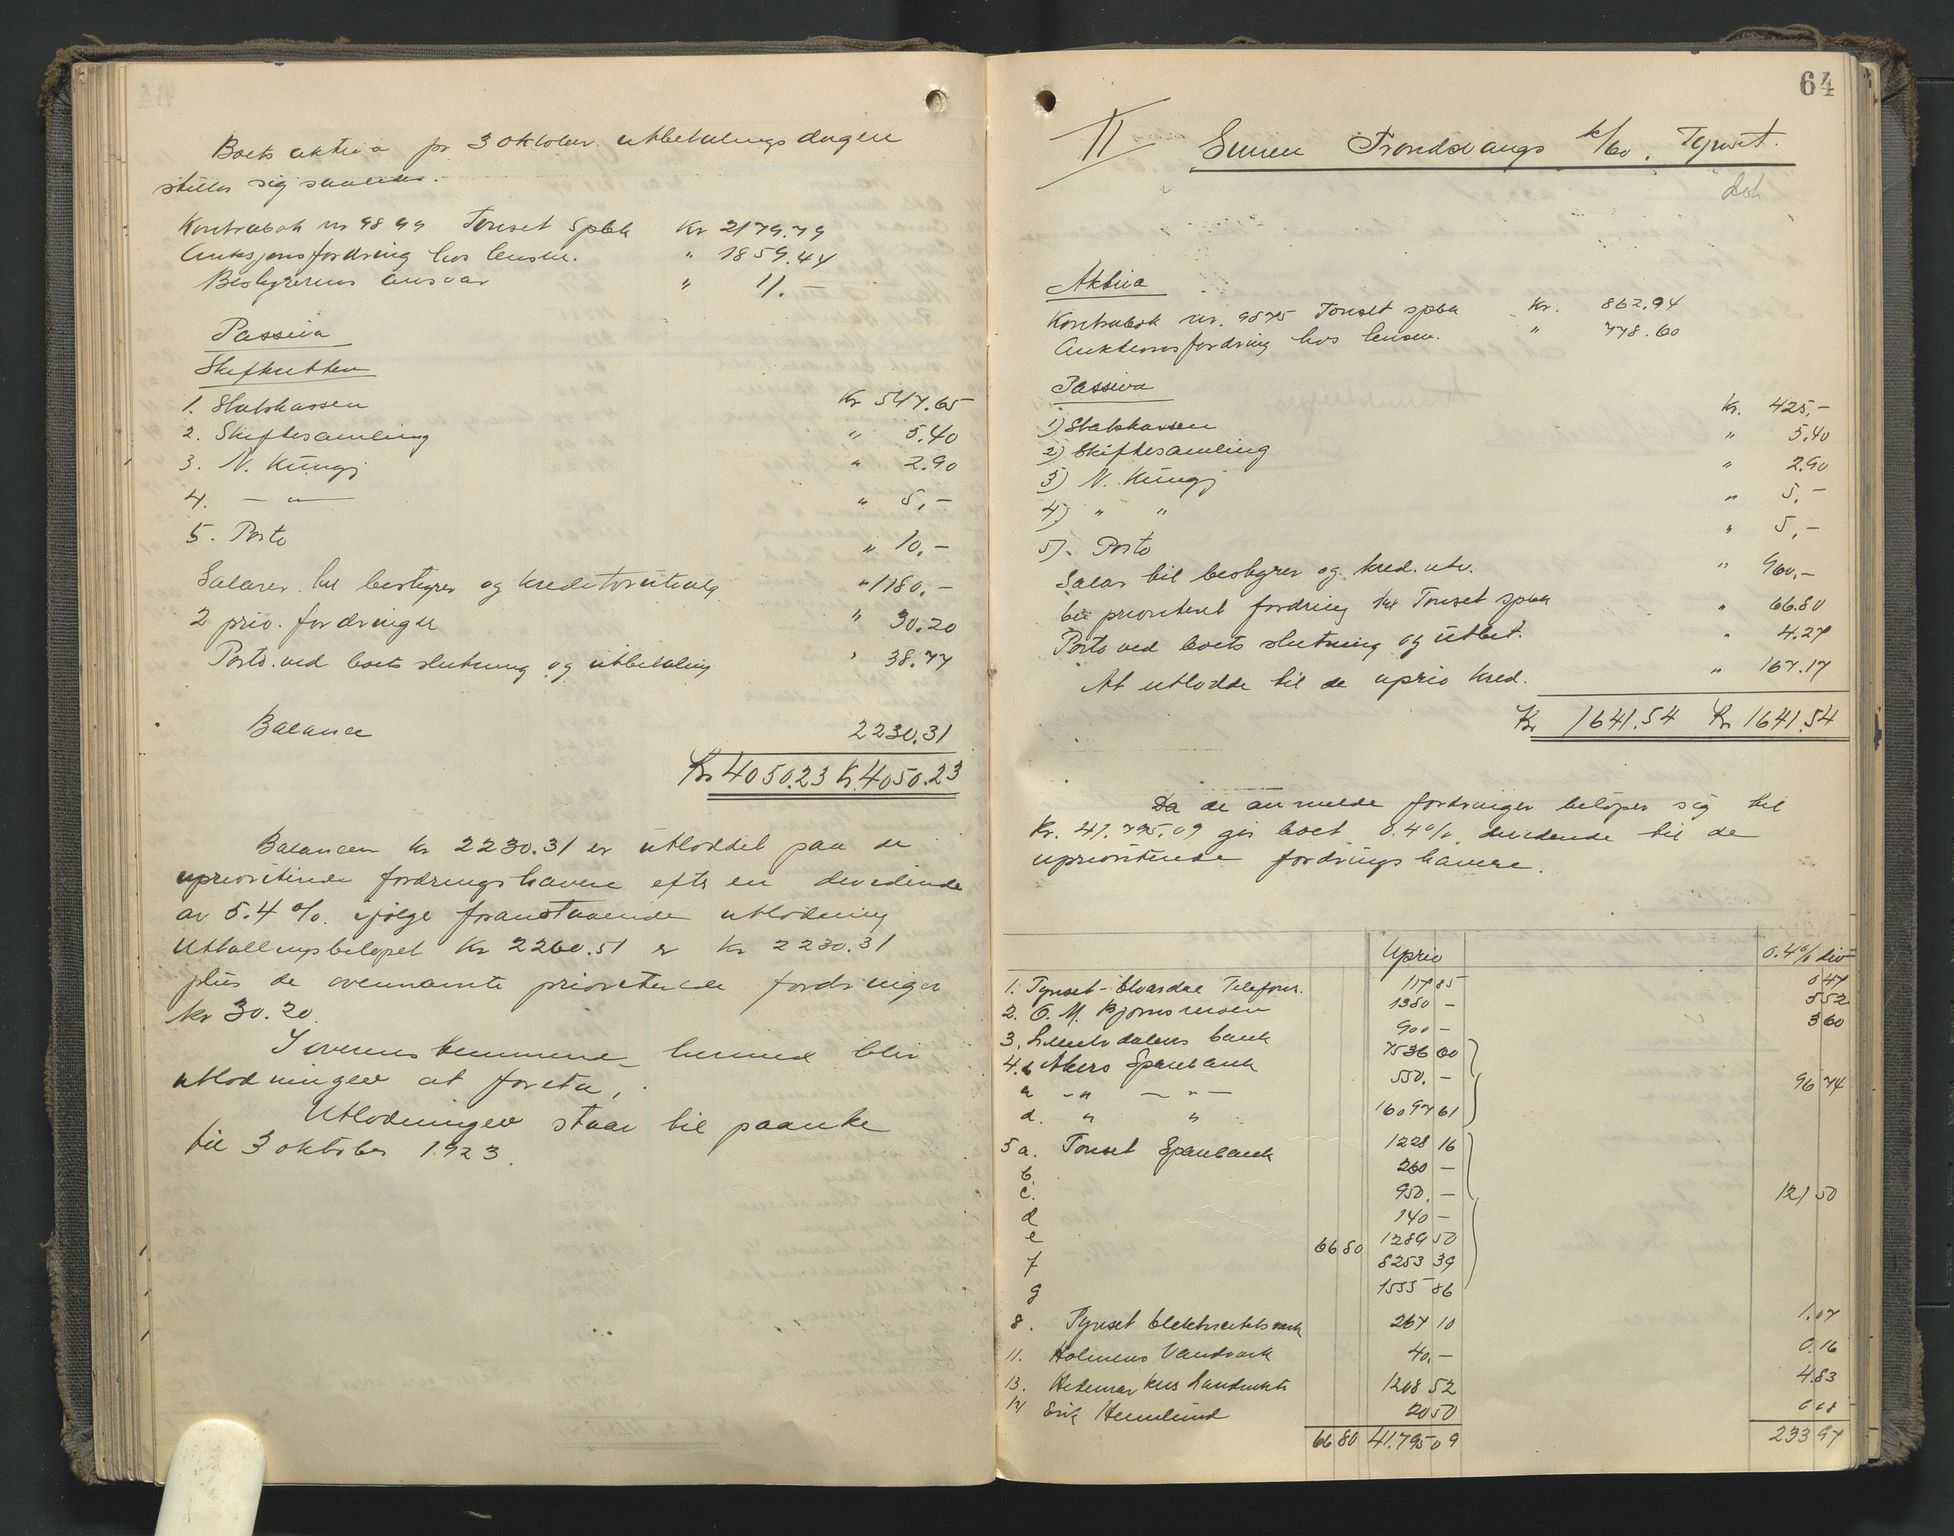 Boets aktiva pr 3 oktober utbetalingsdagen
stiller sig saaledes.
Kontrabok nr 9899 Tønset Spbk Kr 2179.79
Auksjonsfordring hos lensm. " 1859.44
Bestyrerens ansvar " 11.-
Passiva
Skifteretten
1. Statskassen Kr 547.65
2. Skiftesamling " 5.40
3. N. Kungj " 2.90
4. — " — " 5,-
5. Porto " 10,-
Salærer til bestyrer og kreditorutvalg " 1180.-
2 prio. fordringer " 30.20
Porto ved boets slutning og utbetaling " 38.77
Balance 2230.31
Kr 4050.23 Kr. 4050.23
Balancen kr 2230.31 er utloddet paa de
uprioriterede fordringshavere efter en dividende
av 5.4 %. ifølge foranstaaende utlodning
Utdelingsbeløpet Kr 2260.51 er kr 2230.31
plus de ovennævnte prioriterede fordringer
kr 30.20.
I overenskommende hermed blir
utlodningen at foreta,
Utlodningen staar til paanke
til 3 oktober 1923.
64
II Simen Trondsvangs k/bo, Tynset.
Aktiva
Kontrabok nr. 9875 Tønset spbk Kr. 862.94
Auktionsfordring hos lensm. " 778.60
Passiva
1) Statskassen Kr. 425,-
2) Skiftesamling " 5.40
3) N. Kungj " 2.90
4) " " " 5,-
5). Porto " 5,-
Salær til bestyrer og kred. utv. " 960,-
En prioritert fordring til Tønset spbk " 66.80
Porto ved boets slutning og utbet. " 4.27
At utlodde til de uprio kred. " 167.17
Kr 1641.54 Kr 1641.54
Da de anmeldte fordringer beløper sig til
Kr. 41.795.09 gir boet 0.4% dividende til de
uprioriterede fordringshavere.
Uprio 0.4% div
1. Tynset-Elvardal Telefonf. 117 85 0 47
2. O. M. Bjørnsmoen 1380 - 5 52
3. Lillelvdalens bank 900 - 3 60
4.b Akers Sparebank 7536 00
" - " - " - 550. -
d. " " 16097 61 96 74
5 a. Tønset Sparebank 1228 16
b. 260 -
c. 950. - 121 50
d 140 -
e 66 80 1289 50
f 8253 39
g 1555 86
8. Tynset Elektricitetsverk 267 10 1.07
11. Holmens Vandverk 40,- 0.16
13. Hedemarkens Landmkts 1208 52 4.83
14 Erik Hemlund 20 50 0 08
66 80 41.795 09 233 97